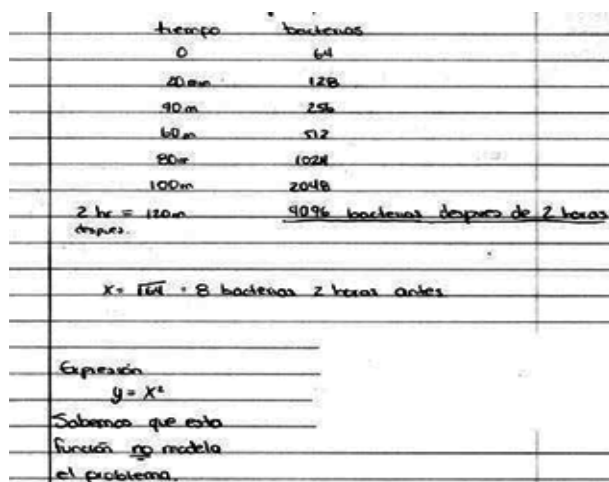 tiempo bacterias
0 64
20 min 128
40 m 256
60 m 512
80 m 1024
100 m 2048
2 hr = 120 m 4096 bacterias despues de 2 horas
despues.
x = √64 = 8 bacterias 2 horas antes
Expresión
y = x²
Sabemos que esta
función no modela
el problema.